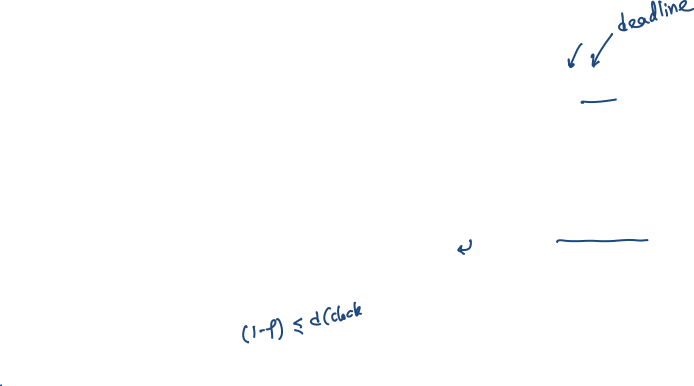 deadline
(1-ρ) ≤ d(clock